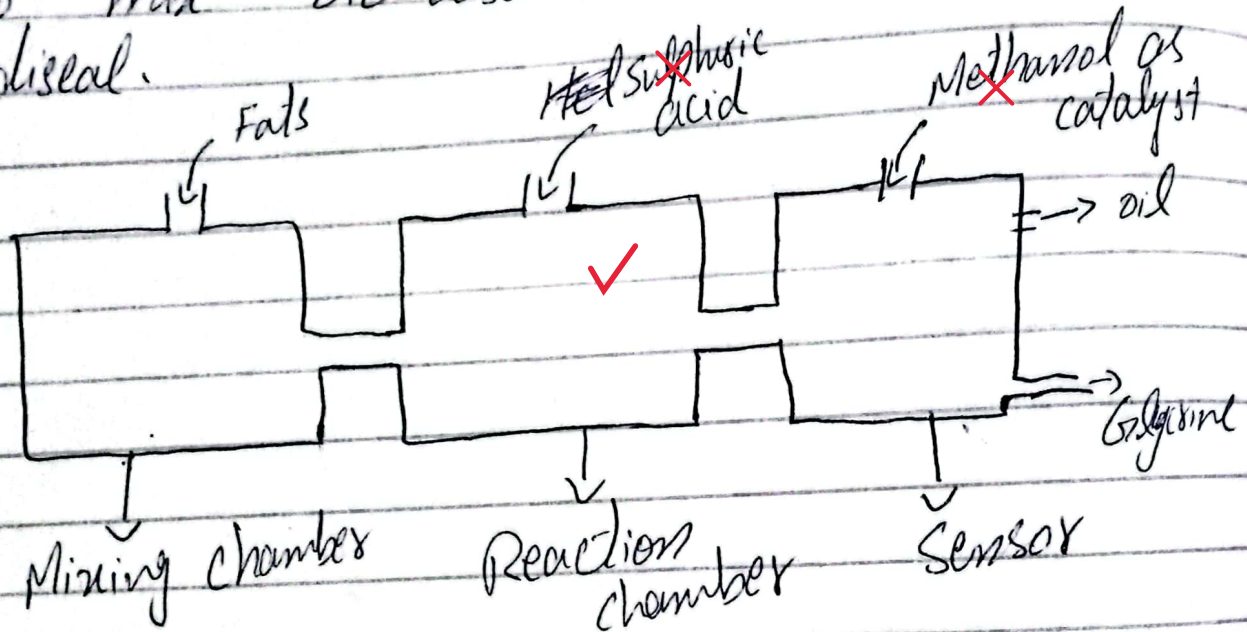 diseal.
Fats
sulphuric
acid
Methanol as
catalyst
oil
Glycrine
Mixing chamber
Reaction
chamber
Sensor